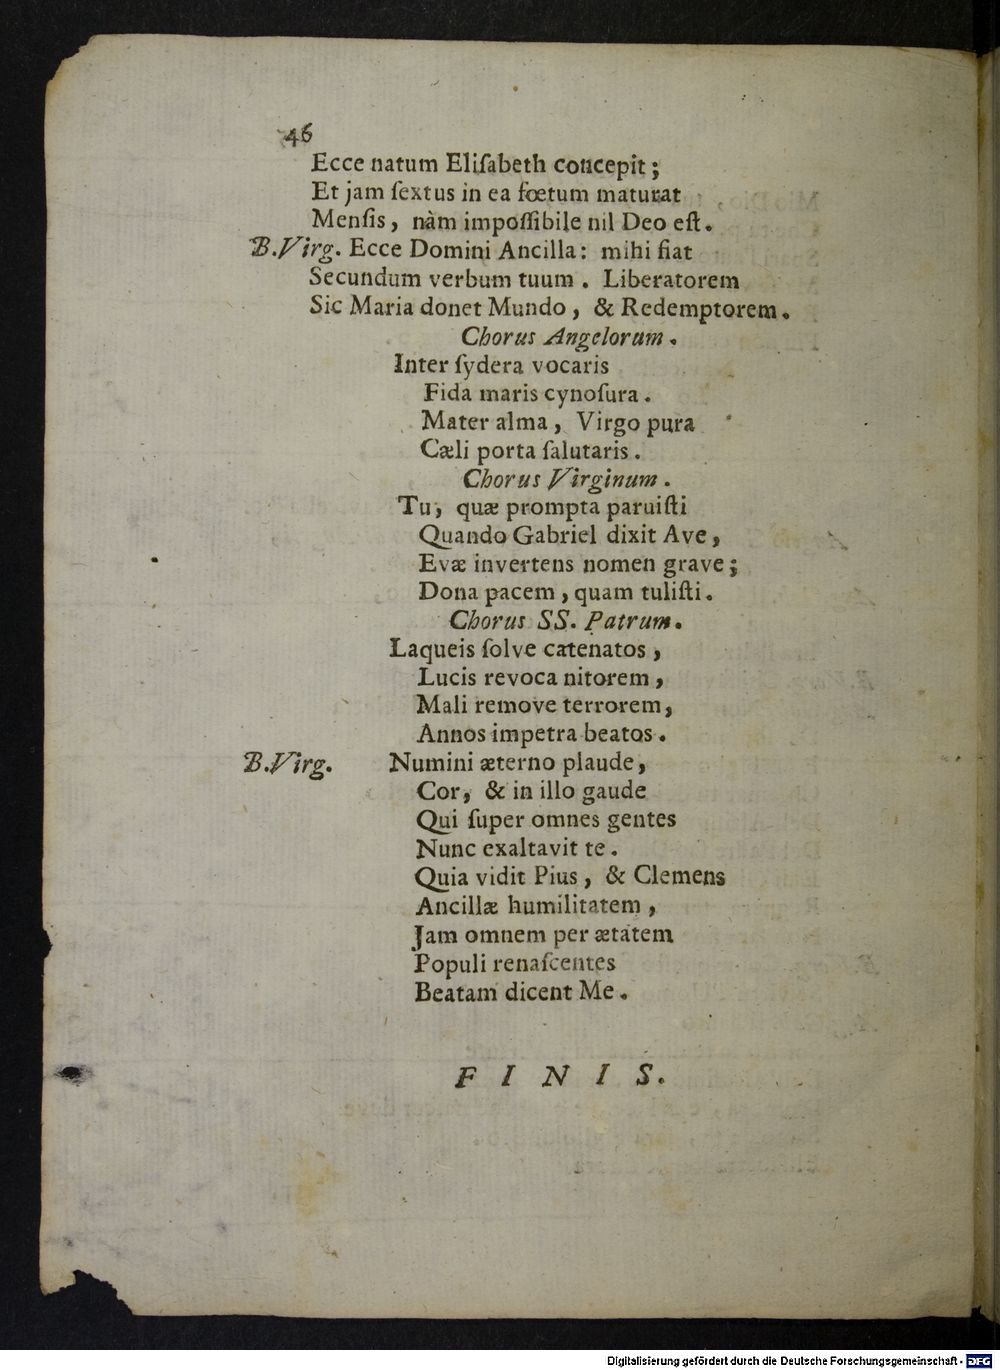 46
Ecce natum Eliſabeth concepit;
Et jam ſextus in ea fœtum maturat
Menſis, nàm impoſſibile nil Deo eſt.
B.Virg. Ecce Domini Ancilla: mihi fiat
Secundum verbum tuum. Liberatorem
Sic Maria donet Mundo, & Redemptorem.
Chorus Angelorum.
Inter ſydera vocaris
Fida maris cynoſura.
Mater alma, Virgo pura
Cæli porta ſalutaris.
Chorus Virginum.
Tu, quæ prompta paruiſti
Quando Gabriel dixit Ave,
Evæ invertens nomen grave;
Dona pacem, quam tuliſti.
Chorus SS. Patrum.
Laqueis ſolve catenatos,
Lucis revoca nitorem,
Mali remove terrorem,
Annos impetra beatos.
B.Virg. Numini æterno plaude,
Cor, & in illo gaude
Qui ſuper omnes gentes
Nunc exaltavit te.
Quia vidit Pius, & Clemens
Ancillæ humilitatem,
Jam omnem per ætatem
Populi renaſcentes
Beatam dicent Me.
FINIS.
Digitalisierung gefördert durch die Deutsche Forschungsgemeinschaft - DFG